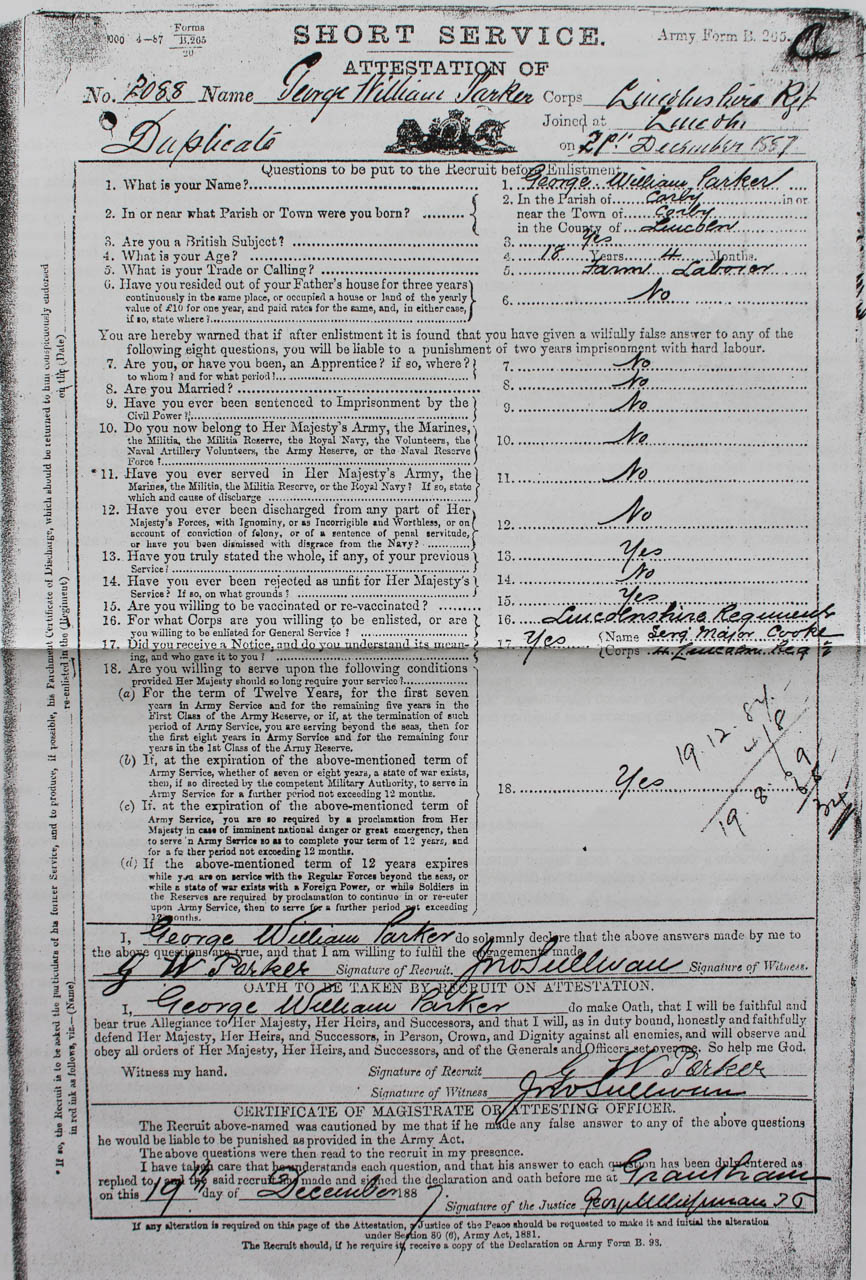 000 4-87 Forms B.265 20
SHORT SERVICE.
Army Form B. 265.
ATTESTATION OF
No. 2088 Name George William Parker Corps Lincolnshire Rgt
Joined at Lincoln
Duplicate
on 21st December 1887
Questions to be put to the Recruit before Enlistment.
1. What is your Name? 1. George William Parker
2. In or near what Parish or Town were you born? 2. In the Parish of Corby in or
near the Town of Corby
in the County of Lincoln
3. Are you a British Subject? 3. Yes
4. What is your Age? 4. 18 Years 4 Months.
5. What is your Trade or Calling? 5. Farm Laborer
6. Have you resided out of your Father's house for three years
continuously in the same place, or occupied a house or land of the yearly
value of £10 for one year, and paid rates for the same, and, in either case,
if so, state where? 6. No
You are hereby warned that if after enlistment it is found that you have given a wilfully false answer to any of the
following eight questions, you will be liable to a punishment of two years imprisonment with hard labour.
7. Are you, or have you been, an Apprentice? if so, where?
to whom? and for what period? 7. No
8. Are you Married? 8. No
9. Have you ever been sentenced to Imprisonment by the
Civil Power? 9. No
10. Do you now belong to Her Majesty's Army, the Marines,
the Militia, the Militia Reserve, the Royal Navy, the Volunteers, the
Naval Artillery Volunteers, the Army Reserve, or the Naval Reserve
Force? 10. No
*11. Have you ever served in Her Majesty's Army, the
Marines, the Militia, the Militia Reserve, or the Royal Navy? If so, state
which and cause of discharge 11. No
12. Have you ever been discharged from any part of Her
Majesty's Forces, with Ignominy, or as Incorrigible and Worthless, or on
account of conviction of felony, or of a sentence of penal servitude,
or have you been dismissed with disgrace from the Navy? 12. No
13. Have you truly stated the whole, if any, of your previous
Service? 13. Yes
14. Have you ever been rejected as unfit for Her Majesty's
Service? If so, on what grounds? 14. No
15. Are you willing to be vaccinated or re-vaccinated? 15. Yes
16. For what Corps are you willing to be enlisted, or are
you willing to be enlisted for General Service? 16. Lincolnshire Regiment
17. Did you receive a Notice, and do you understand its mean-
ing, and who gave it to you? 17. Yes (Name Serg Major Cooke
(Corps 4 Lincoln Reg
18. Are you willing to serve upon the following conditions
provided Her Majesty should so long require your service?
(a) For the term of Twelve Years, for the first seven
years in Army Service and for the remaining five years in the
First Class of the Army Reserve, or if, at the termination of such
period of Army Service, you are serving beyond the seas, then for
the first eight years in Army Service and for the remaining four
years in the 1st Class of the Army Reserve.
(b) If, at the expiration of the above-mentioned term of
Army Service, whether of seven or eight years, a state of war exists,
then, if so directed by the competent Military Authority, to serve in
Army Service for a further period not exceeding 12 months.
18. Yes
(c) If, at the expiration of the above-mentioned term of
Army Service, you are so required by a proclamation from Her
Majesty in case of imminent national danger or great emergency, then
to serve in Army Service so as to complete your term of 12 years, and
for a further period not exceeding 12 months.
(d) If the above-mentioned term of 12 years expires
while you are on service with the Regular Forces beyond the seas, or
while a state of war exists with a Foreign Power, or while Soldiers in
the Reserves are required by proclamation to continue in or re-enter
upon Army Service, then to serve for a further period not exceeding
12 months.
19.12.87
4.18
19.8.69
I, George William Parker do solemnly declare that the above answers made by me to
the above questions are true, and that I am willing to fulfil the engagement made.
G W Parker Signature of Recruit. Jno Sullivan Signature of Witness.
OATH TO BE TAKEN BY RECRUIT ON ATTESTATION.
I, George William Parker do make Oath, that I will be faithful and
bear true Allegiance to Her Majesty, Her Heirs, and Successors, and that I will, as in duty bound, honestly and faithfully
defend Her Majesty, Her Heirs, and Successors, in Person, Crown, and Dignity against all enemies, and will observe and
obey all orders of Her Majesty, Her Heirs, and Successors, and of the Generals and Officers set over me. So help me God.
Witness my hand. Signature of Recruit G W Parker
Signature of Witness Jno Sullivan
CERTIFICATE OF MAGISTRATE OR ATTESTING OFFICER.
The Recruit above-named was cautioned by me that if he made any false answer to any of the above questions
he would be liable to be punished as provided in the Army Act.
The above questions were then read to the recruit in my presence.
I have taken care that he understands each question, and that his answer to each question has been duly entered as
replied to, and the said recruit has made and signed the declaration and oath before me at Grantham
on this 19th day of December 1887
Signature of the Justice
If any alteration is required on this page of the Attestation, a Justice of the Peace should be requested to make it and initial the alteration
under Section 80 (6), Army Act, 1881.
The Recruit should, if he require it, receive a copy of the Declaration on Army Form B. 93.
* If so, the Recruit is to be asked the particulars of his former Service, and to produce, if possible, his Parchment Certificate of Discharge, which should be returned to him conspicuously endorsed
in red ink as follows, viz.— (Name) re-enlisted in the (Regiment) on the (Date)